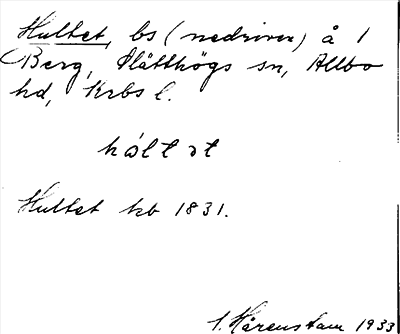 Hultet, bs (nedriven) å 1
Berg, Slätthögs sn, Allbo
hd, Krbs l.
hált ət
Hultet kb 1831.
I. Hårenstam 1933